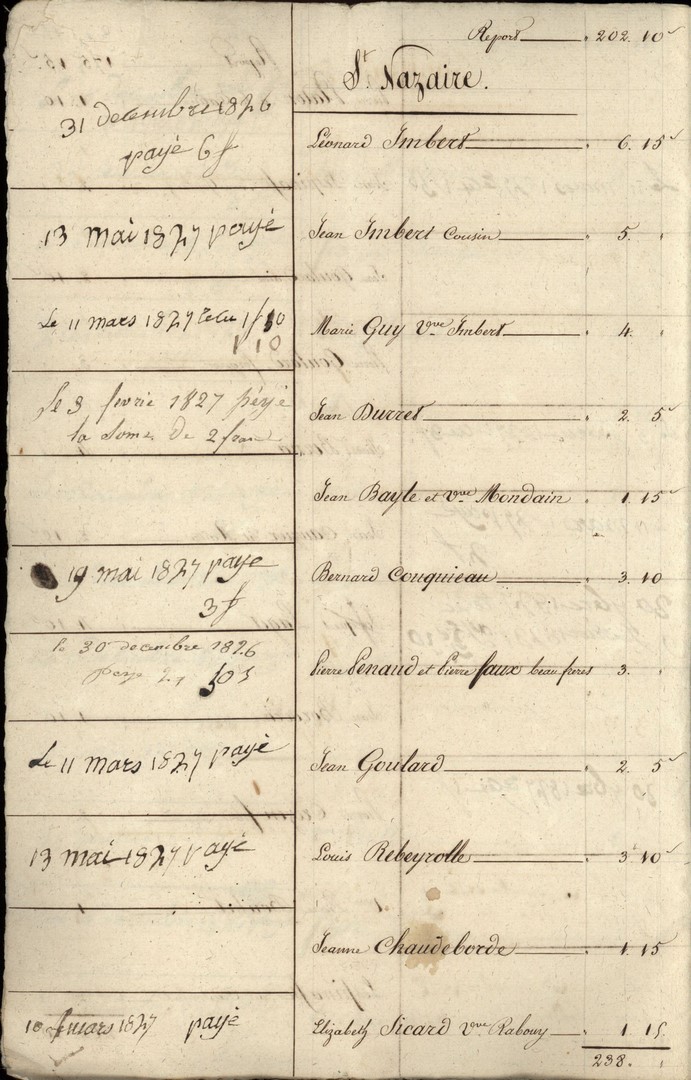 Report 202. 10 s
St. Nazaire.
31 decembre 1826
payé 6 f
Léonard Imbert 6. 15 s
13 mai 1827 payé
Jean Imbert Cousin 5. "
Le 11 mars 1827 1 f 10
1 10
Marie Guy Vve Imbert 4. "
le 3 fevrie 1827 péyé
la some De 2 franc
Jean Durret 2. 5 s
Jean Bayle et Vve Mondain 1. 15 s
19 mai 1827 payé
3 f
Bernard Couquieau 3. 10
le 30 decembre 1826
paye 2, 10 s
Pierre Penaud et Pierre faux beau freres 3. "
Le 11 mars 1827 payé
Jean Goulard 2. 5 s
13 mai 1827 payé
Louis Rebeyrolle 3. 10 s
Jeanne Chaudeborde 1. 15
mars 1827 payé
Elizabeth Sicard Vve Rabouy 1. 15
238. "